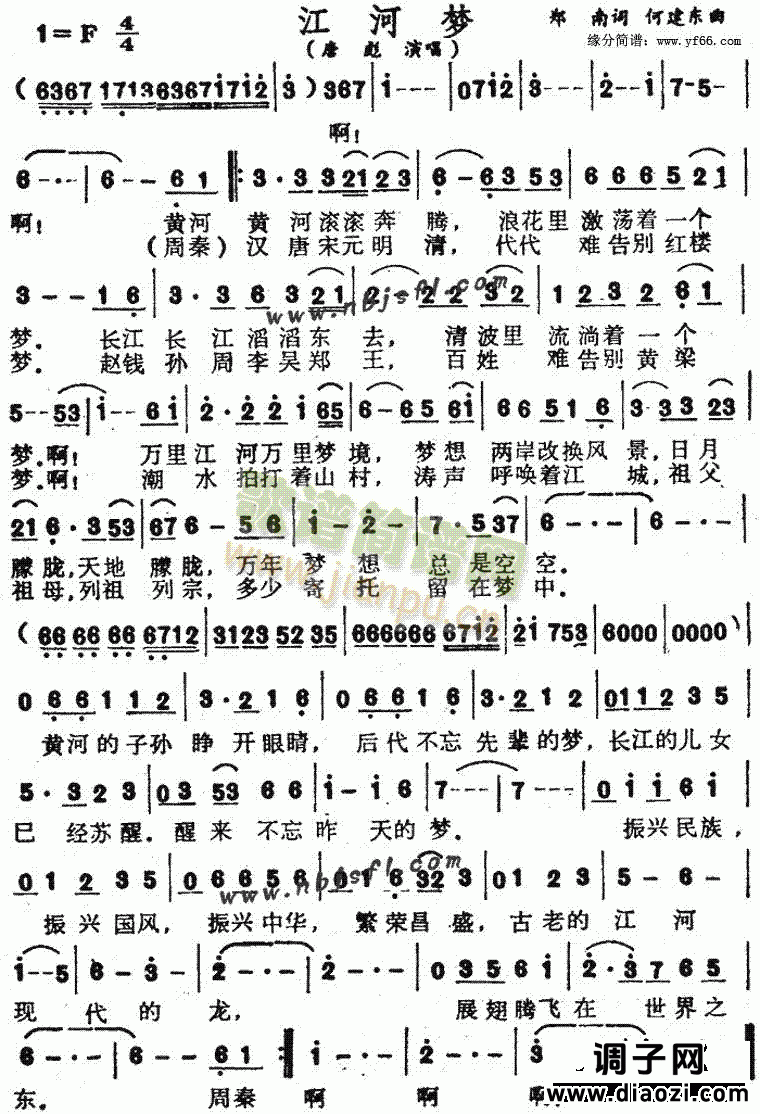 江河梦
1=F 4/4
郑南词 何建东曲
(唐彪 演唱)
缘分简谱: www.yf66.com
(6367 17136367i7i2 3) 367 | i--- | 07i2 | 3--- | 2--i | 7-5- |
啊!
6-·- | 6--61 |: 3·3321 23 | 6-6353 | 666521 |
啊! 黄河 黄 河滚滚奔 腾, 浪花里 激荡着一个
(周秦) 汉 唐宋元明 清, 代代 难告别红楼
3--16 | 3·36321 | 2-2232 | 1232 61 |
www.nbjsfl.com
梦. 长江 长 江滔滔东 去, 清波里 流淌着一个
梦. 赵钱 孙 周李吴郑 王, 百姓 难告别黄粱
5--53 | i--6i | 2·22i65 | 6-6561 | 66516 | 33323 |
梦.啊! 万里江 河万里梦境, 梦想 两岸改换风 景,日月
梦.啊! 潮 水 拍打着山村, 涛声 呼唤着江 城,祖父
216·353 | 676-56 | i-2- | 7·537 | 6-·- | 6-·- |
歌谱简谱网
www.jianpu.cn
朦胧,天地 朦胧, 万年 梦 想 总 是空 空.
祖母,列祖 列宗, 多少 寄 托 留 在梦 中.
(66 66 66 6712 | 3123 52 35 | 666666 67i2 | 2i 753 | 6000 | 0000) |
0 66112 | 3·216 | 06616 | 3·212 | 011235 |
黄河的子孙 睁 开眼睛, 后代不忘先 辈的梦, 长江的儿女
5·323 | 035366 | i-i6 | 7-- | 7-·- | 0ii6i |
已 经苏醒. 醒来 不忘昨 天的梦. 振兴民族,
01235 | 06656 | 016323 | 0123 | 5-6- |
www.nbjsfl.com
振兴国风, 振兴中华, 繁荣昌 盛, 古老的 江 河
i--5 | 6-3- | 2-·- | 2-·- | 0356i | 2·3765 |
现 代 的 龙, 展翅腾飞在 世界之
6-·- | 6--61 :| i-·- | 2-·- | 3
东. 周秦 啊 啊 啊
调子网
www.diaozi.com